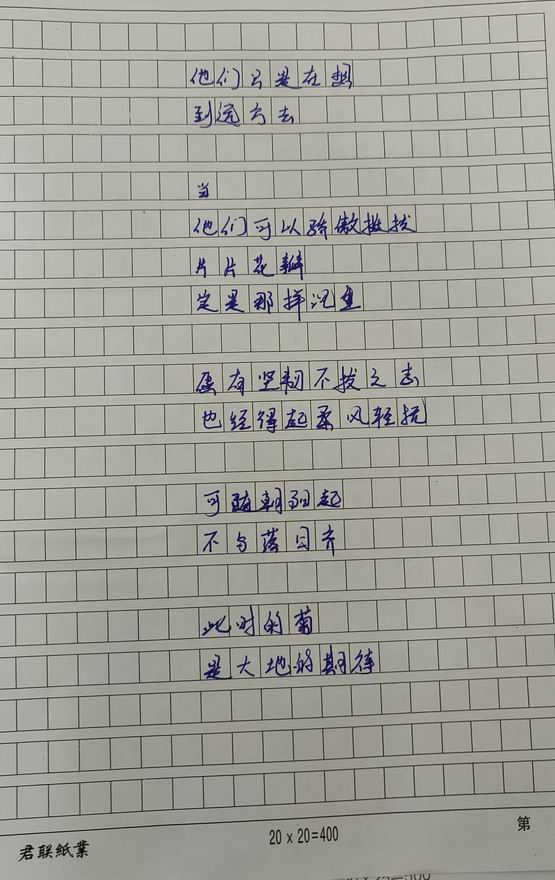 他们只是在想
到远方去
当
他们可以骄傲挺拔
片片花瓣
定是那样沉重
虽有坚韧不拔之志
也经得起柔风轻抚
可随朝阳起
不与落日齐
此时的菊
是大地的期待
君联紙業
20×20=400
第